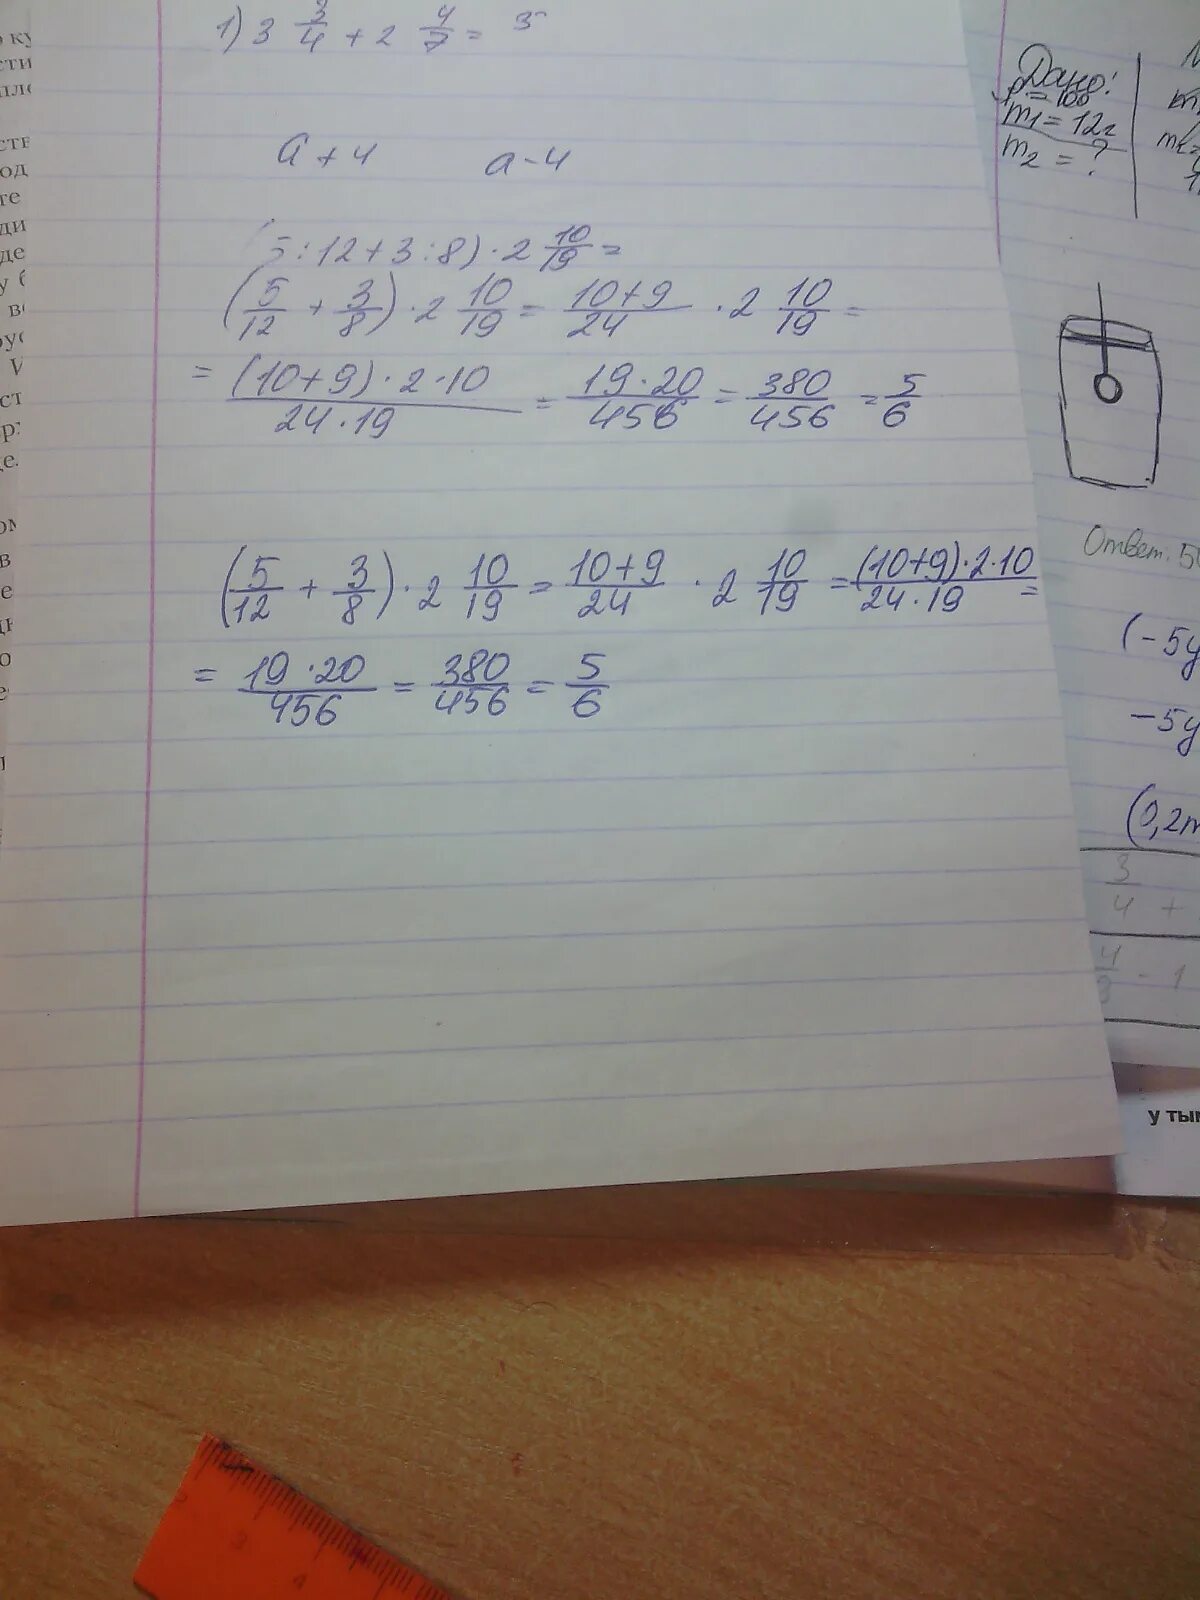 1) 3 3/4 + 2 4/7 = 5
a + 4 a - 4
5 : 12 + 3 : 8) · 2 10/19 =
(5/12 + 3/8) · 2 10/19 = 10+9/24 · 2 10/19 =
= (10+9) · 2 · 10/24 · 19 = 19 · 20/456 = 380/456 = 5/6
(5/12 + 3/8) · 2 10/19 = 10+9/24 · 2 10/19 = (10+9) · 2 · 10/24 · 19 =
= 19 · 20/456 = 380/456 = 5/6
Дано:
= 100
m1 = 12г
m2 = ?
Ответ. 5
(-5y
-5y
(0,2m
3/4 +
- 1
у ты
3
4